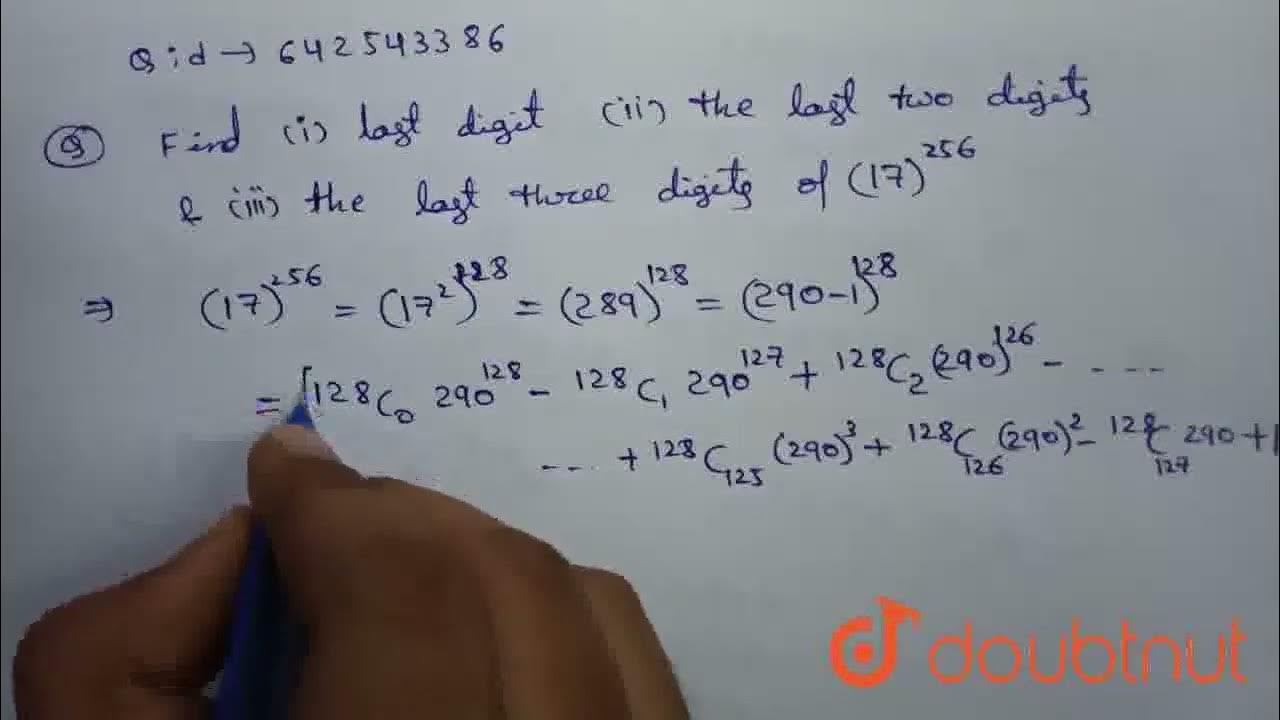 Q id → 642543386
Q Find (i) last digit (ii) the last two digits
& (iii) the last three digits of (17)^256
⇒ (17)^256 = (17²)^128 = (289)^128 = (290-1)^128
= [128C₀ 290^128 - 128C₁ 290^127 + 128C₂ (290)^126 - - - - -
- - - - + 128C₁₂₅ (290)³ + 128C₁₂₆ (290)² - 128C₁₂₇ 290 + 1
doubtnut